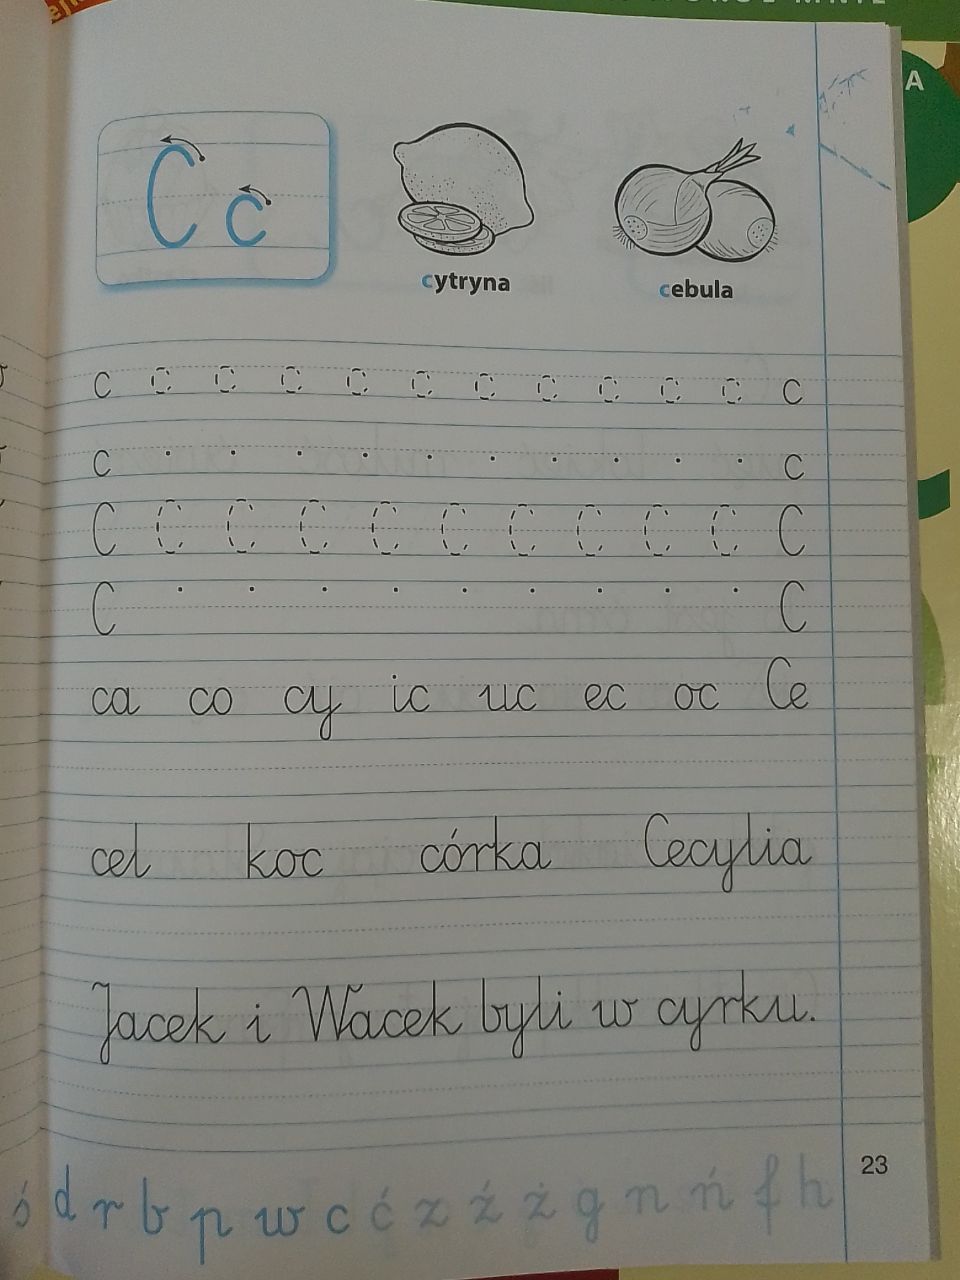 A
C c
cytryna cebula
c c c c c c c c c c c c
c c
C C C C C C C C C C C
C C
ca co cy ic uc ec oc Ce
cel koc córka Cecylia
Jacek i Wacek byli w cyrku.
23
ś d r b p w c ć z ź ż g n ń f h